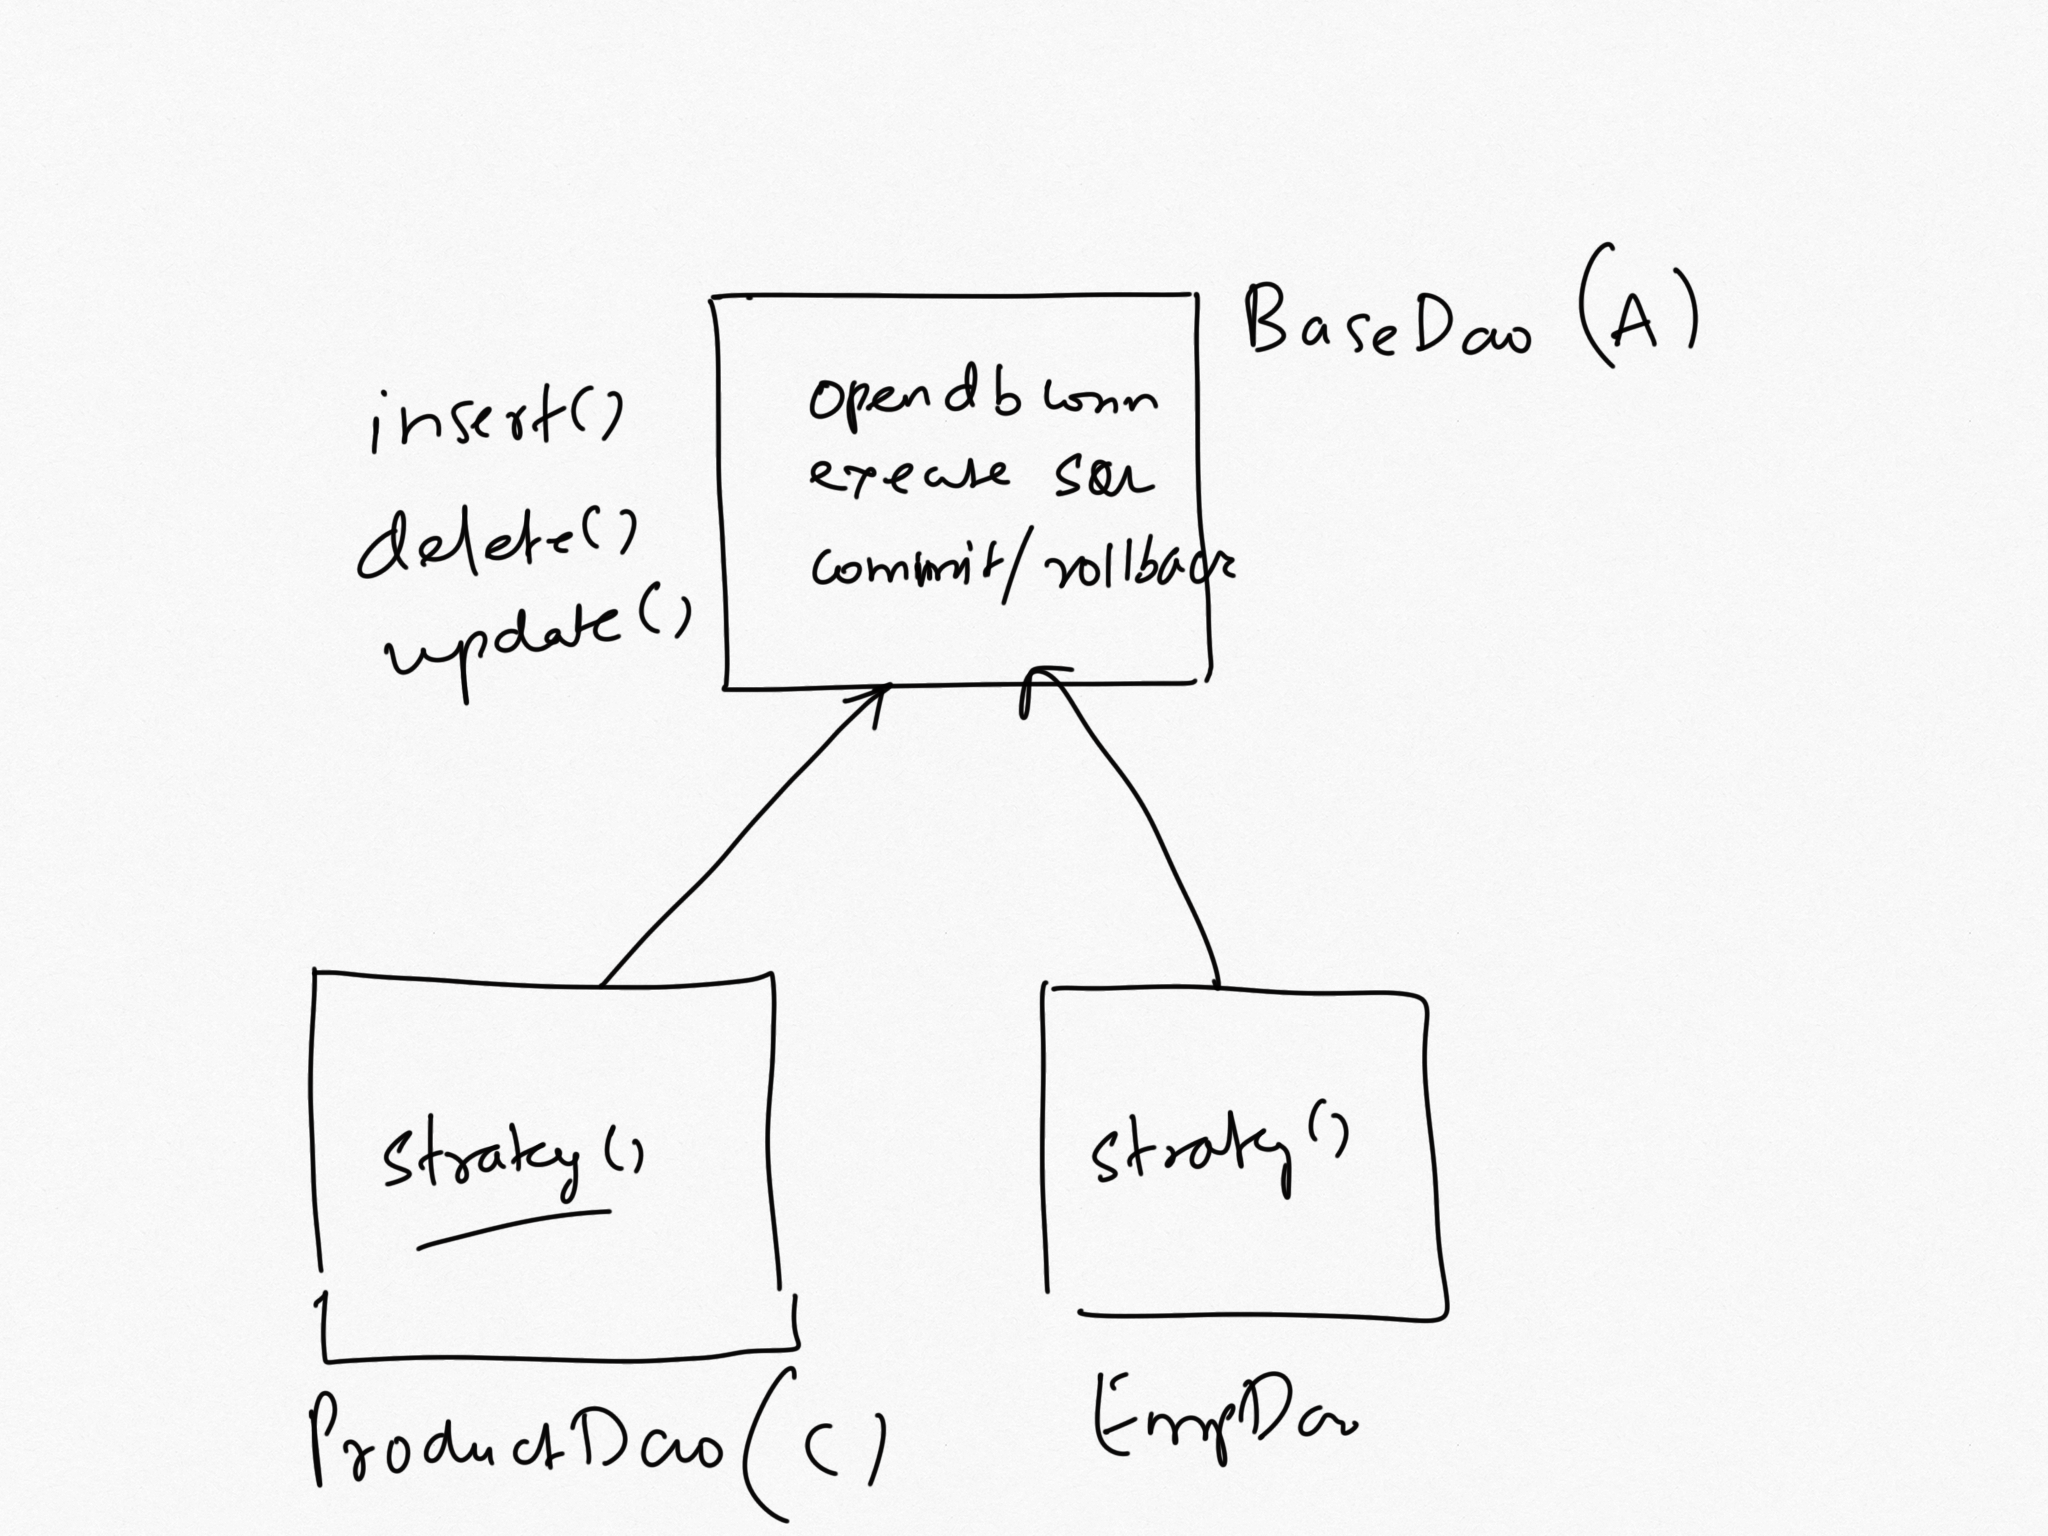 BaseDao (A)
insert()
delete()
update()
open db conn
execute SQL
commit/rollback
strategy()
strategy()
ProductDao (C)
EmpDao